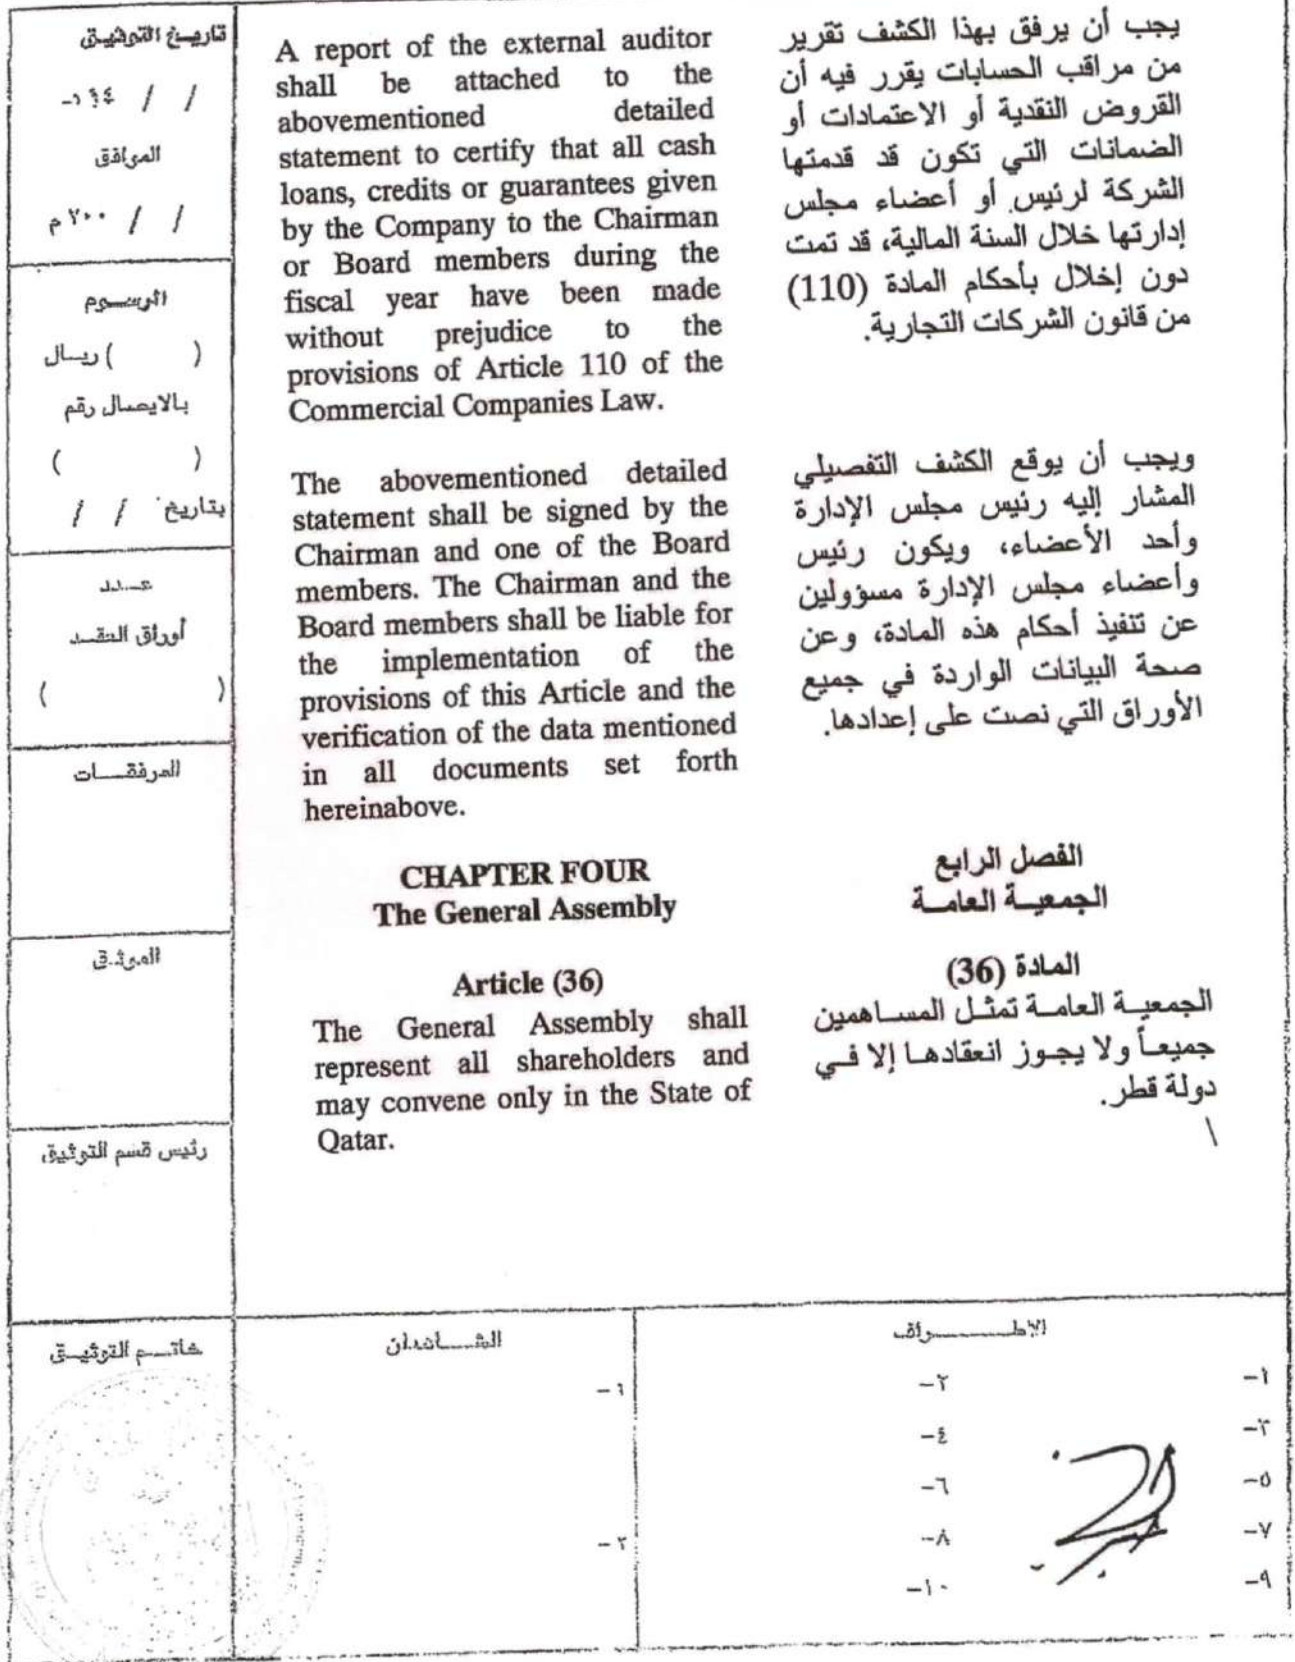 تاريخ التوثيق
/ / ١٤هـ
الموافق
/ / ٢٠٠م
الرسوم
( ) ريال
بالايصال رقم
( )
بتاريخ / /
عدد
أوراق العقد
( )
المرفقات
الموثق
رئيس قسم التوثيق
خاتم التوثيق
A report of the external auditor
shall be attached to the
abovementioned detailed
statement to certify that all cash
loans, credits or guarantees given
by the Company to the Chairman
or Board members during the
fiscal year have been made
without prejudice to the
provisions of Article 110 of the
Commercial Companies Law.
The abovementioned detailed
statement shall be signed by the
Chairman and one of the Board
members. The Chairman and the
Board members shall be liable for
the implementation of the
provisions of this Article and the
verification of the data mentioned
in all documents set forth
hereinabove.
CHAPTER FOUR
The General Assembly
Article (36)
The General Assembly shall
represent all shareholders and
may convene only in the State of
Qatar.
يجب أن يرفق بهذا الكشف تقرير
من مراقب الحسابات يقرر فيه أن
القروض النقدية أو الاعتمادات أو
الضمانات التي تكون قد قدمتها
الشركة لرئيس أو أعضاء مجلس
إدارتها خلال السنة المالية، قد تمت
دون إخلال بأحكام المادة (110)
من قانون الشركات التجارية.
ويجب أن يوقع الكشف التفصيلي
المشار إليه رئيس مجلس الإدارة
وأحد الأعضاء، ويكون رئيس
وأعضاء مجلس الإدارة مسؤولين
عن تنفيذ أحكام هذه المادة، وعن
صحة البيانات الواردة في جميع
الأوراق التي نصت على إعدادها.
الفصل الرابع
الجمعية العامة
المادة (36)
الجمعية العامة تمثل المساهمين
جميعاً ولا يجوز انعقادها إلا في
دولة قطر.
\
الاطراف
١-
٢-
٣-
٤-
٥-
٦-
٧-
٨-
٩-
١٠-
الشاهدان
١-
٢-